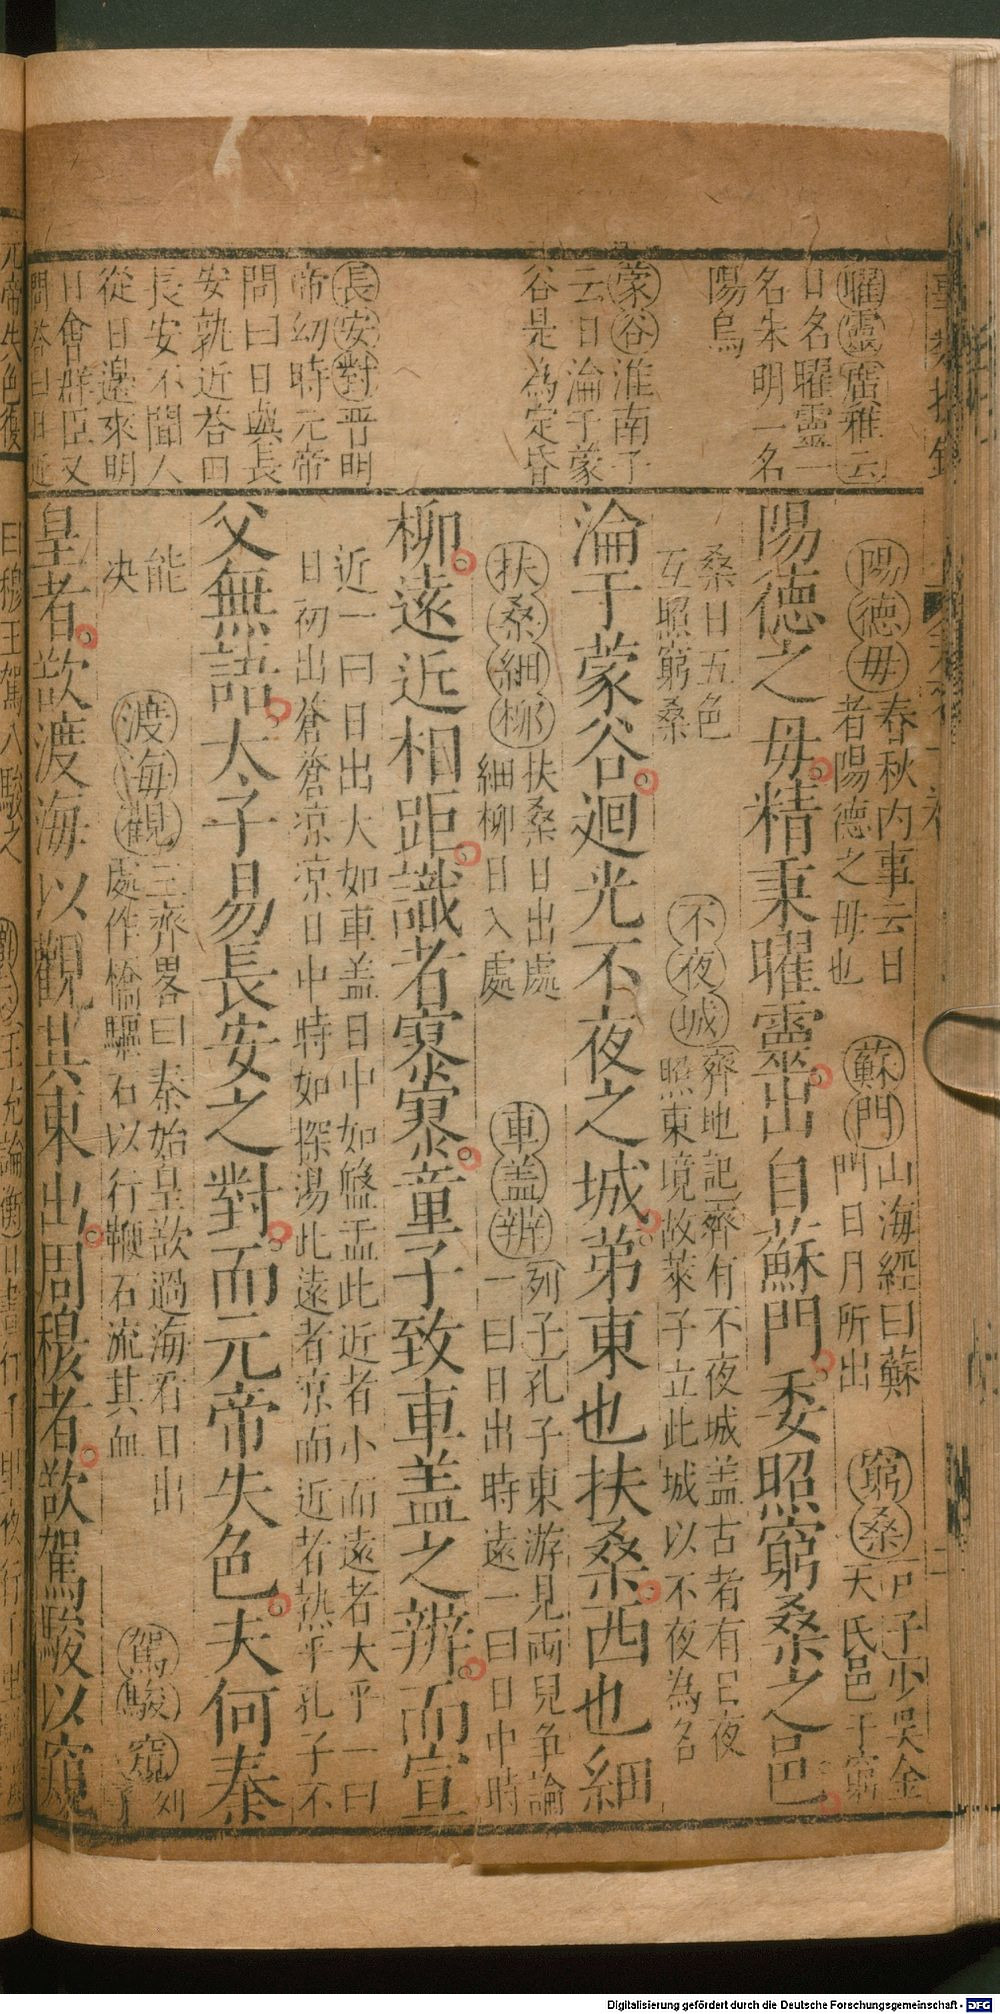 曜靈廣雅云
日名曜靈一
名朱明一名
陽烏
蒙谷淮南子
云日淪于蒙
谷是為定昏
長安對晉明
帝幼時元帝
問曰日與長
安孰近荅曰
長安不聞人
從日邊來明
日會群臣又
問荅曰日近
陽德毋春秋内事云日
者陽德之毋也
蘇門山海經曰蘇
門日月所出
窮桑尸子少昊金
天氏邑于窮
陽德之毋精秉曜靈出自蘇門委照窮桑之邑
桑日五色
互照窮桑
不夜城齊地記齊有不夜城盖古者有日夜
照東境故萊子立此城以不夜為名
淪于蒙谷迴光不夜之城弟東也扶桑西也細
扶桑細柳扶桑日出處
細柳日入處
車盖辨列子孔子東游見兩兒争論
一曰日出時遠一曰日中時
柳遠近相距識者寮寮童子致車盖之辨而宣
近一曰日出大如車盖日中如盤盂此近者小而遠者大乎一曰
日初出蒼蒼凉凉日中時如探湯此遠者凉而近者熱乎孔子不
父無語太子易長安之對而元帝失色夫何秦
能
决
渡海觀三齊畧曰秦始皇欲過海看日出
處作橋驅石以行鞭石流其血
駕駿窺列
子
皇者欲渡海以觀其東出周穆者欲駕駿以窺
元帝失色復
曰穆王駕八駿之
Digitalisierung gefördert durch die Deutsche Forschungsgemeinschaft - DFG